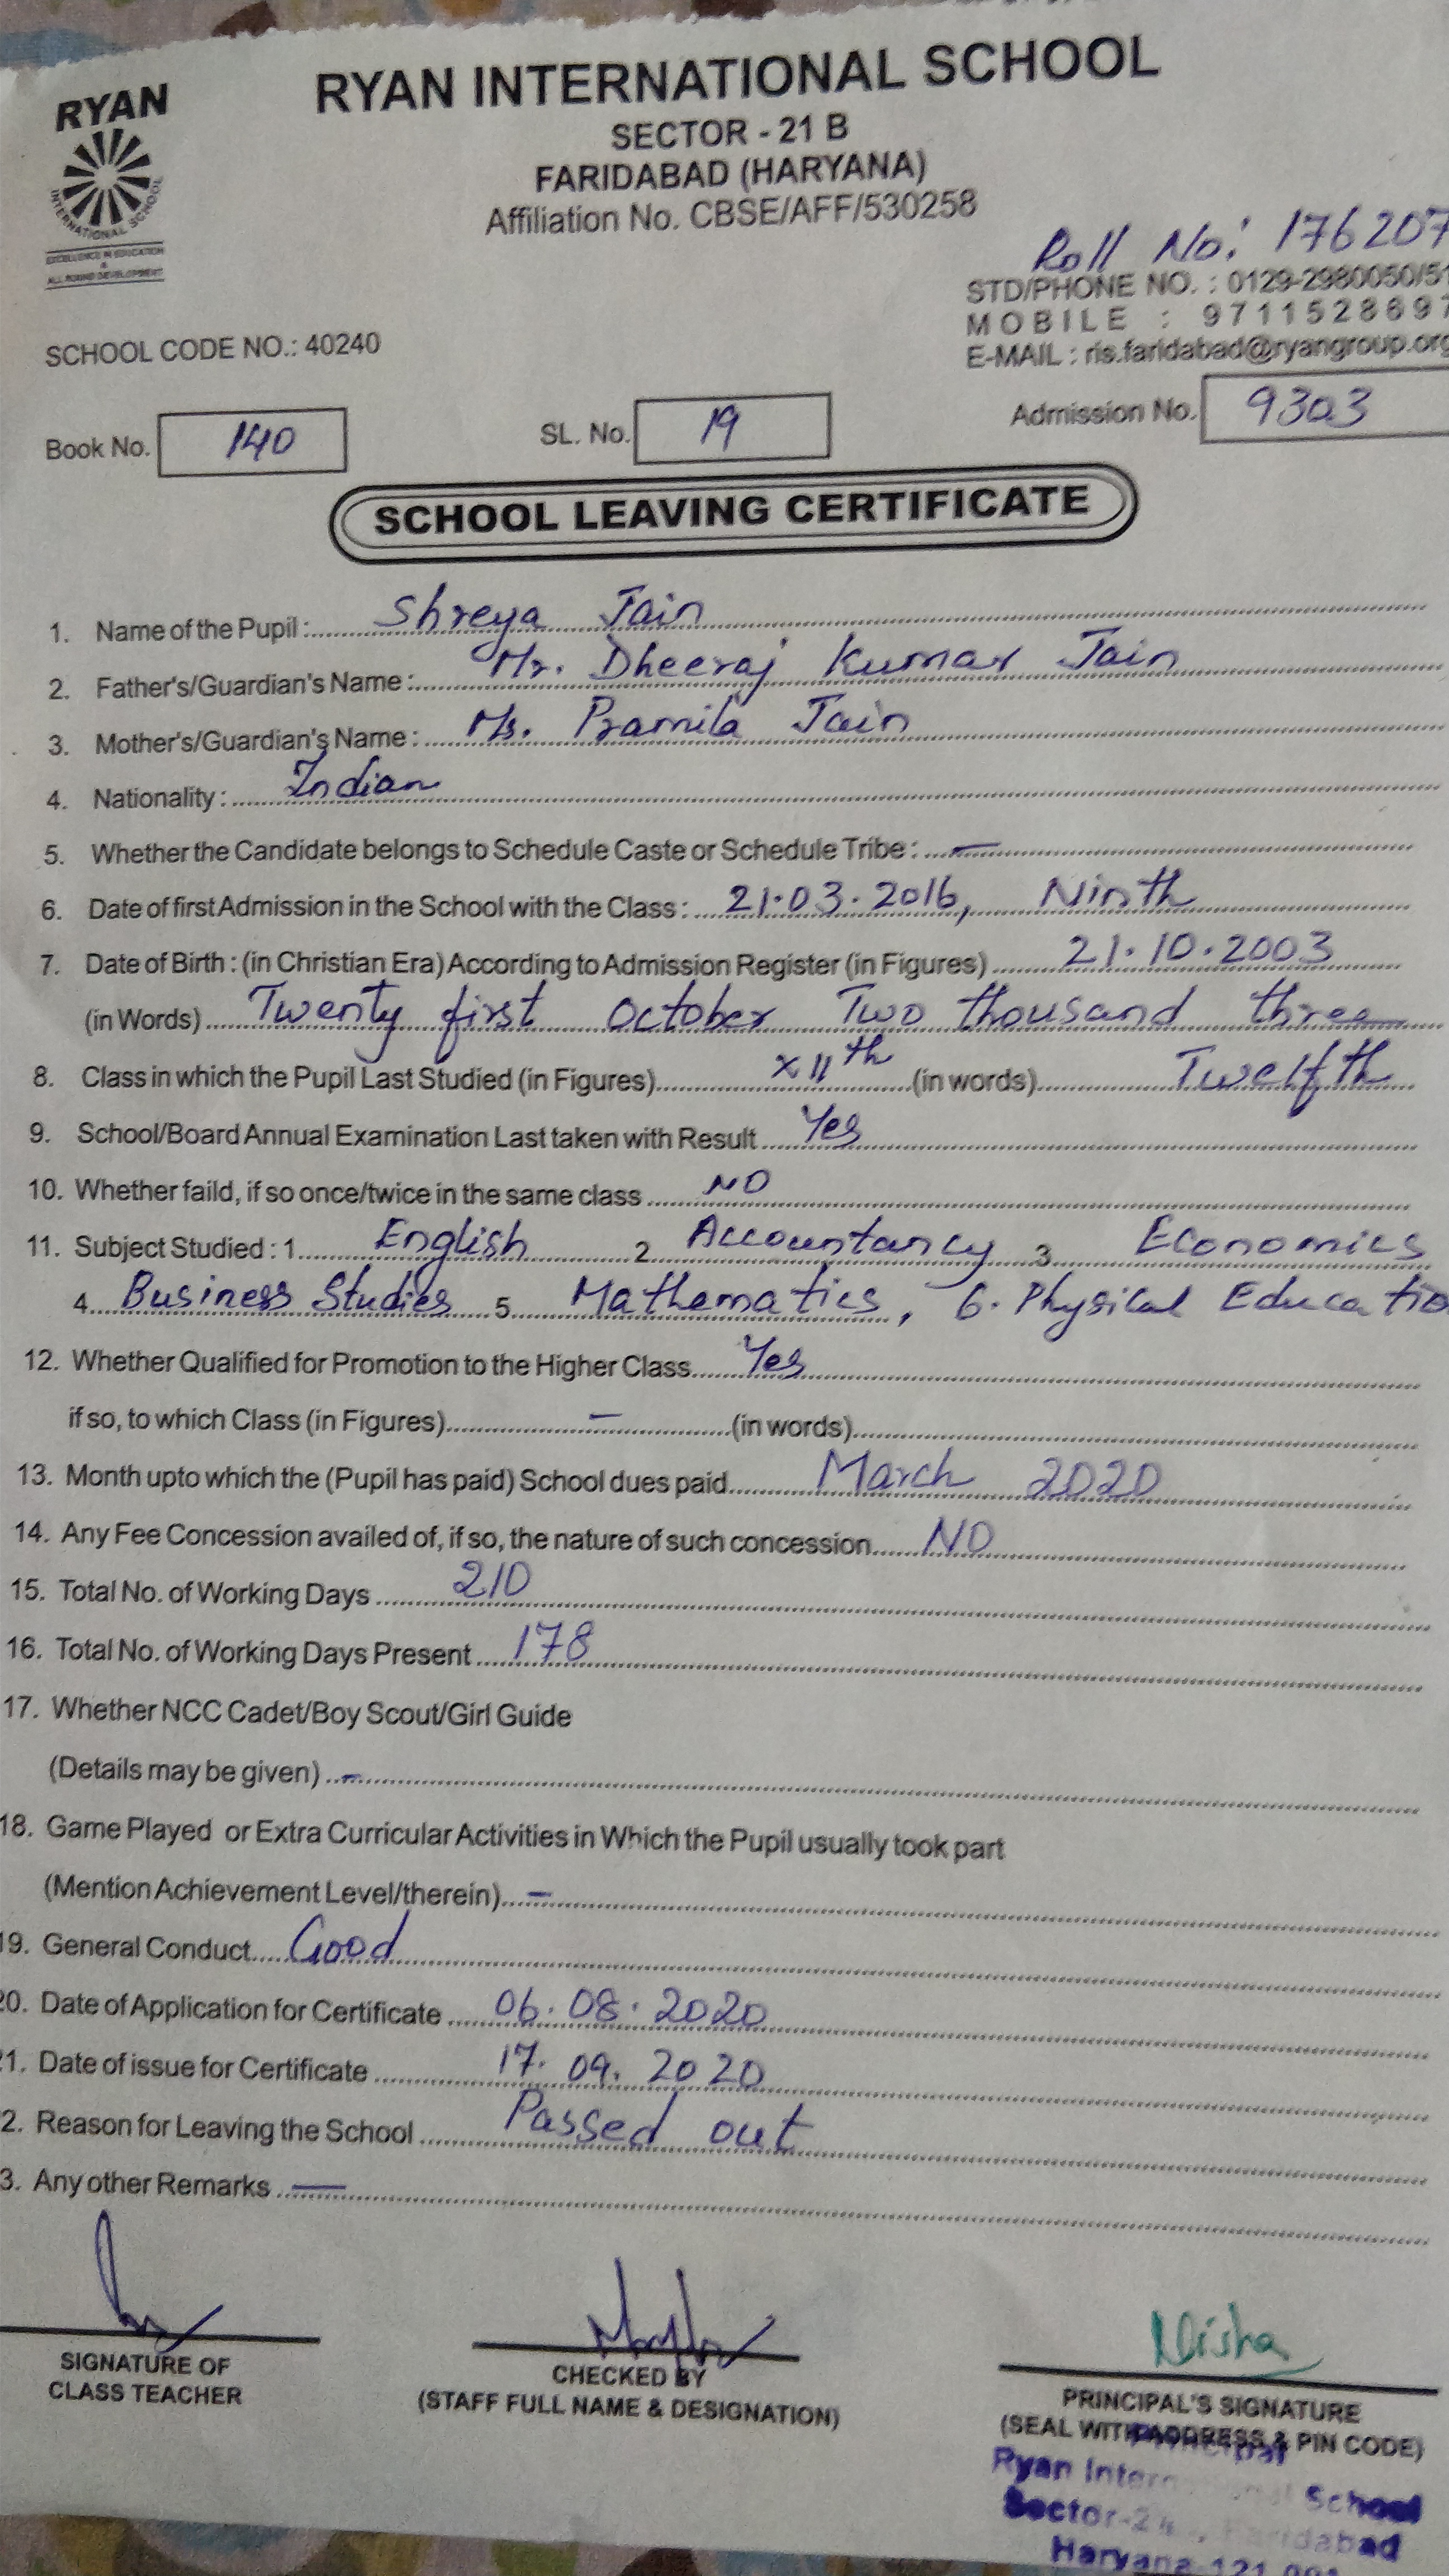 RYAN
INTERNATIONAL SCHOOL
EXCELLENCE IN EDUCATION
&
ALL ROUND DEVELOPMENT
RYAN INTERNATIONAL SCHOOL
SECTOR - 21 B
FARIDABAD (HARYANA)
Affiliation No. CBSE/AFF/530258
Roll No: 176207
STD/PHONE NO. : 0129-2980050/51
MOBILE : 9711528697
E-MAIL : ris.faridabad@ryangroup.org
SCHOOL CODE NO.: 40240
Book No. 140 SL. No. 19 Admission No. 9303
SCHOOL LEAVING CERTIFICATE
1. Name of the Pupil : Shreya Jain
2. Father's/Guardian's Name : Mr. Dheeraj Kumar Jain
3. Mother's/Guardian's Name : Ms. Pramila Jain
4. Nationality : Indian
5. Whether the Candidate belongs to Schedule Caste or Schedule Tribe : —
6. Date of first Admission in the School with the Class : 21.03.2016, Ninth
7. Date of Birth : (in Christian Era) According to Admission Register (in Figures) 21.10.2003
(in Words) Twenty first October Two thousand three
8. Class in which the Pupil Last Studied (in Figures) XIIth (in words) Twelfth
9. School/Board Annual Examination Last taken with Result Yes
10. Whether faild, if so once/twice in the same class NO
11. Subject Studied : 1 English 2 Accountancy 3 Economics
4 Business Studies 5 Mathematics, 6. Physical Educatio
12. Whether Qualified for Promotion to the Higher Class Yes
if so, to which Class (in Figures) — (in words)
13. Month upto which the (Pupil has paid) School dues paid March 2020
14. Any Fee Concession availed of, if so, the nature of such concession NO
15. Total No. of Working Days 210
16. Total No. of Working Days Present 178
17. Whether NCC Cadet/Boy Scout/Girl Guide
(Details may be given) —
18. Game Played or Extra Curricular Activities in Which the Pupil usually took part
(Mention Achievement Level/therein) —
19. General Conduct Good
20. Date of Application for Certificate 06.08.2020
21. Date of issue for Certificate 17.09.2020
2. Reason for Leaving the School Passed out
3. Any other Remarks —
Nisha
SIGNATURE OF
CLASS TEACHER
CHECKED BY
(STAFF FULL NAME & DESIGNATION)
PRINCIPAL'S SIGNATURE
(SEAL WITH ADDRESS & PIN CODE)
Principal
Ryan International School
Sector-2 Faridabad
Haryana